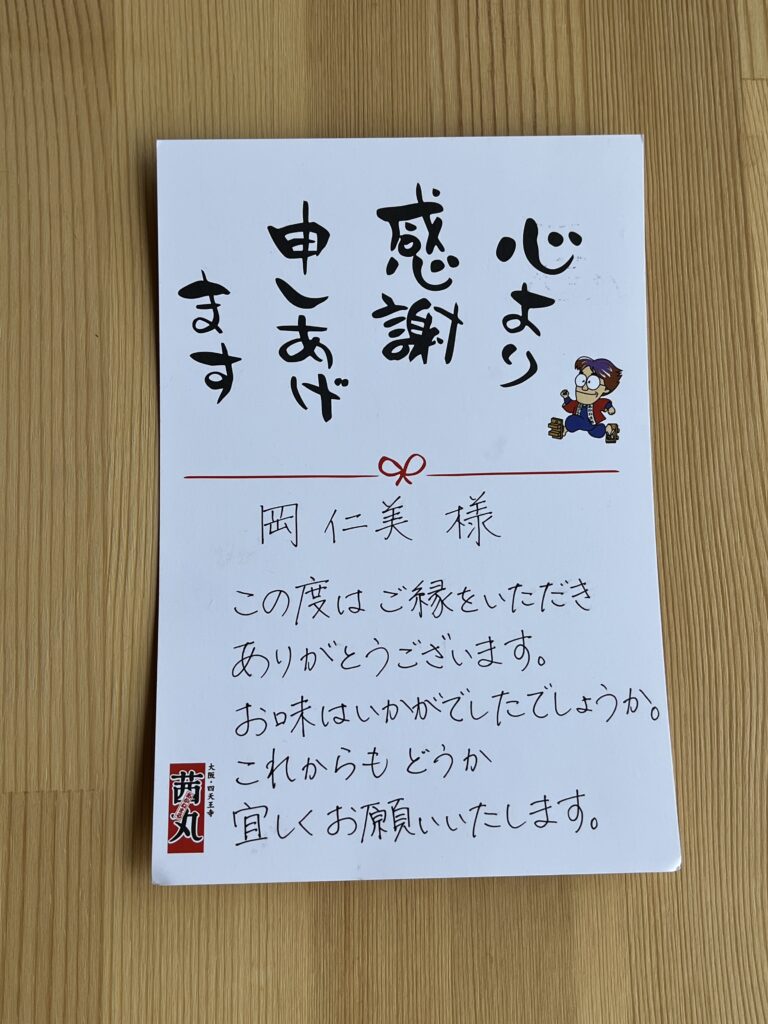 心より
感謝
申しあげ
ます
岡 仁美 様
この度は ご縁をいただき
ありがとうございます。
お味はいかがでしたでしょうか。
これからも どうか
宜しくお願いいたします。
大阪・四天王寺
茜丸